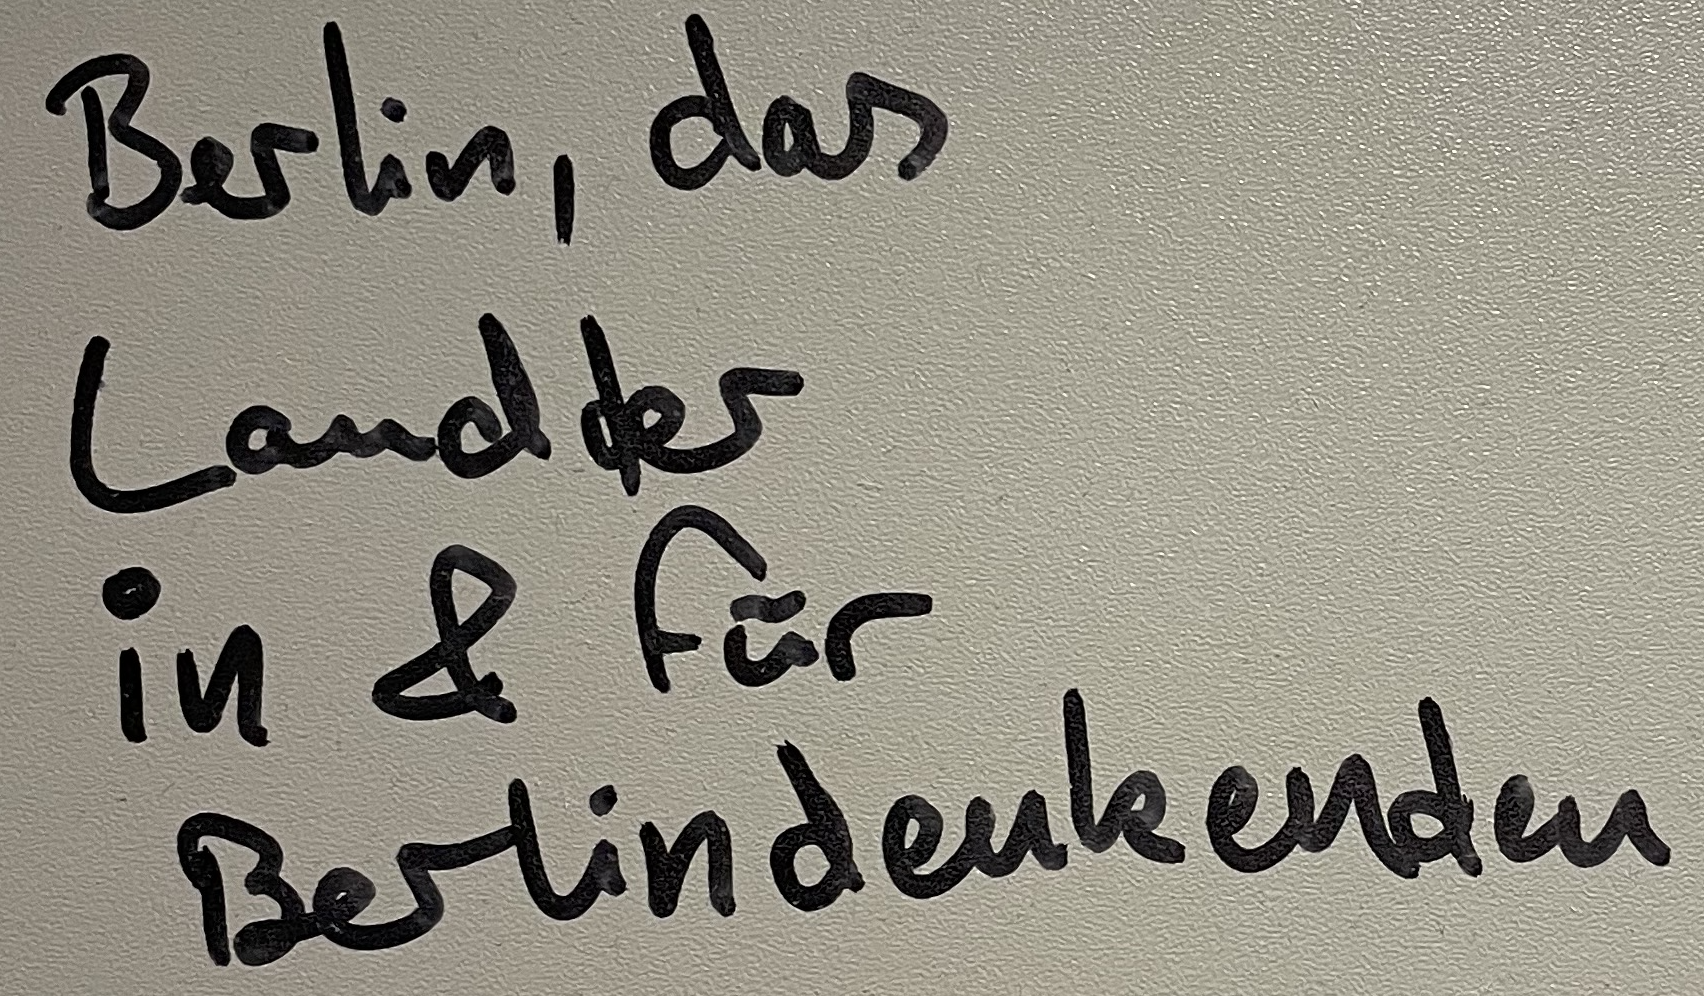 Berlin, das
Land der
in & für
Berlindenkenden